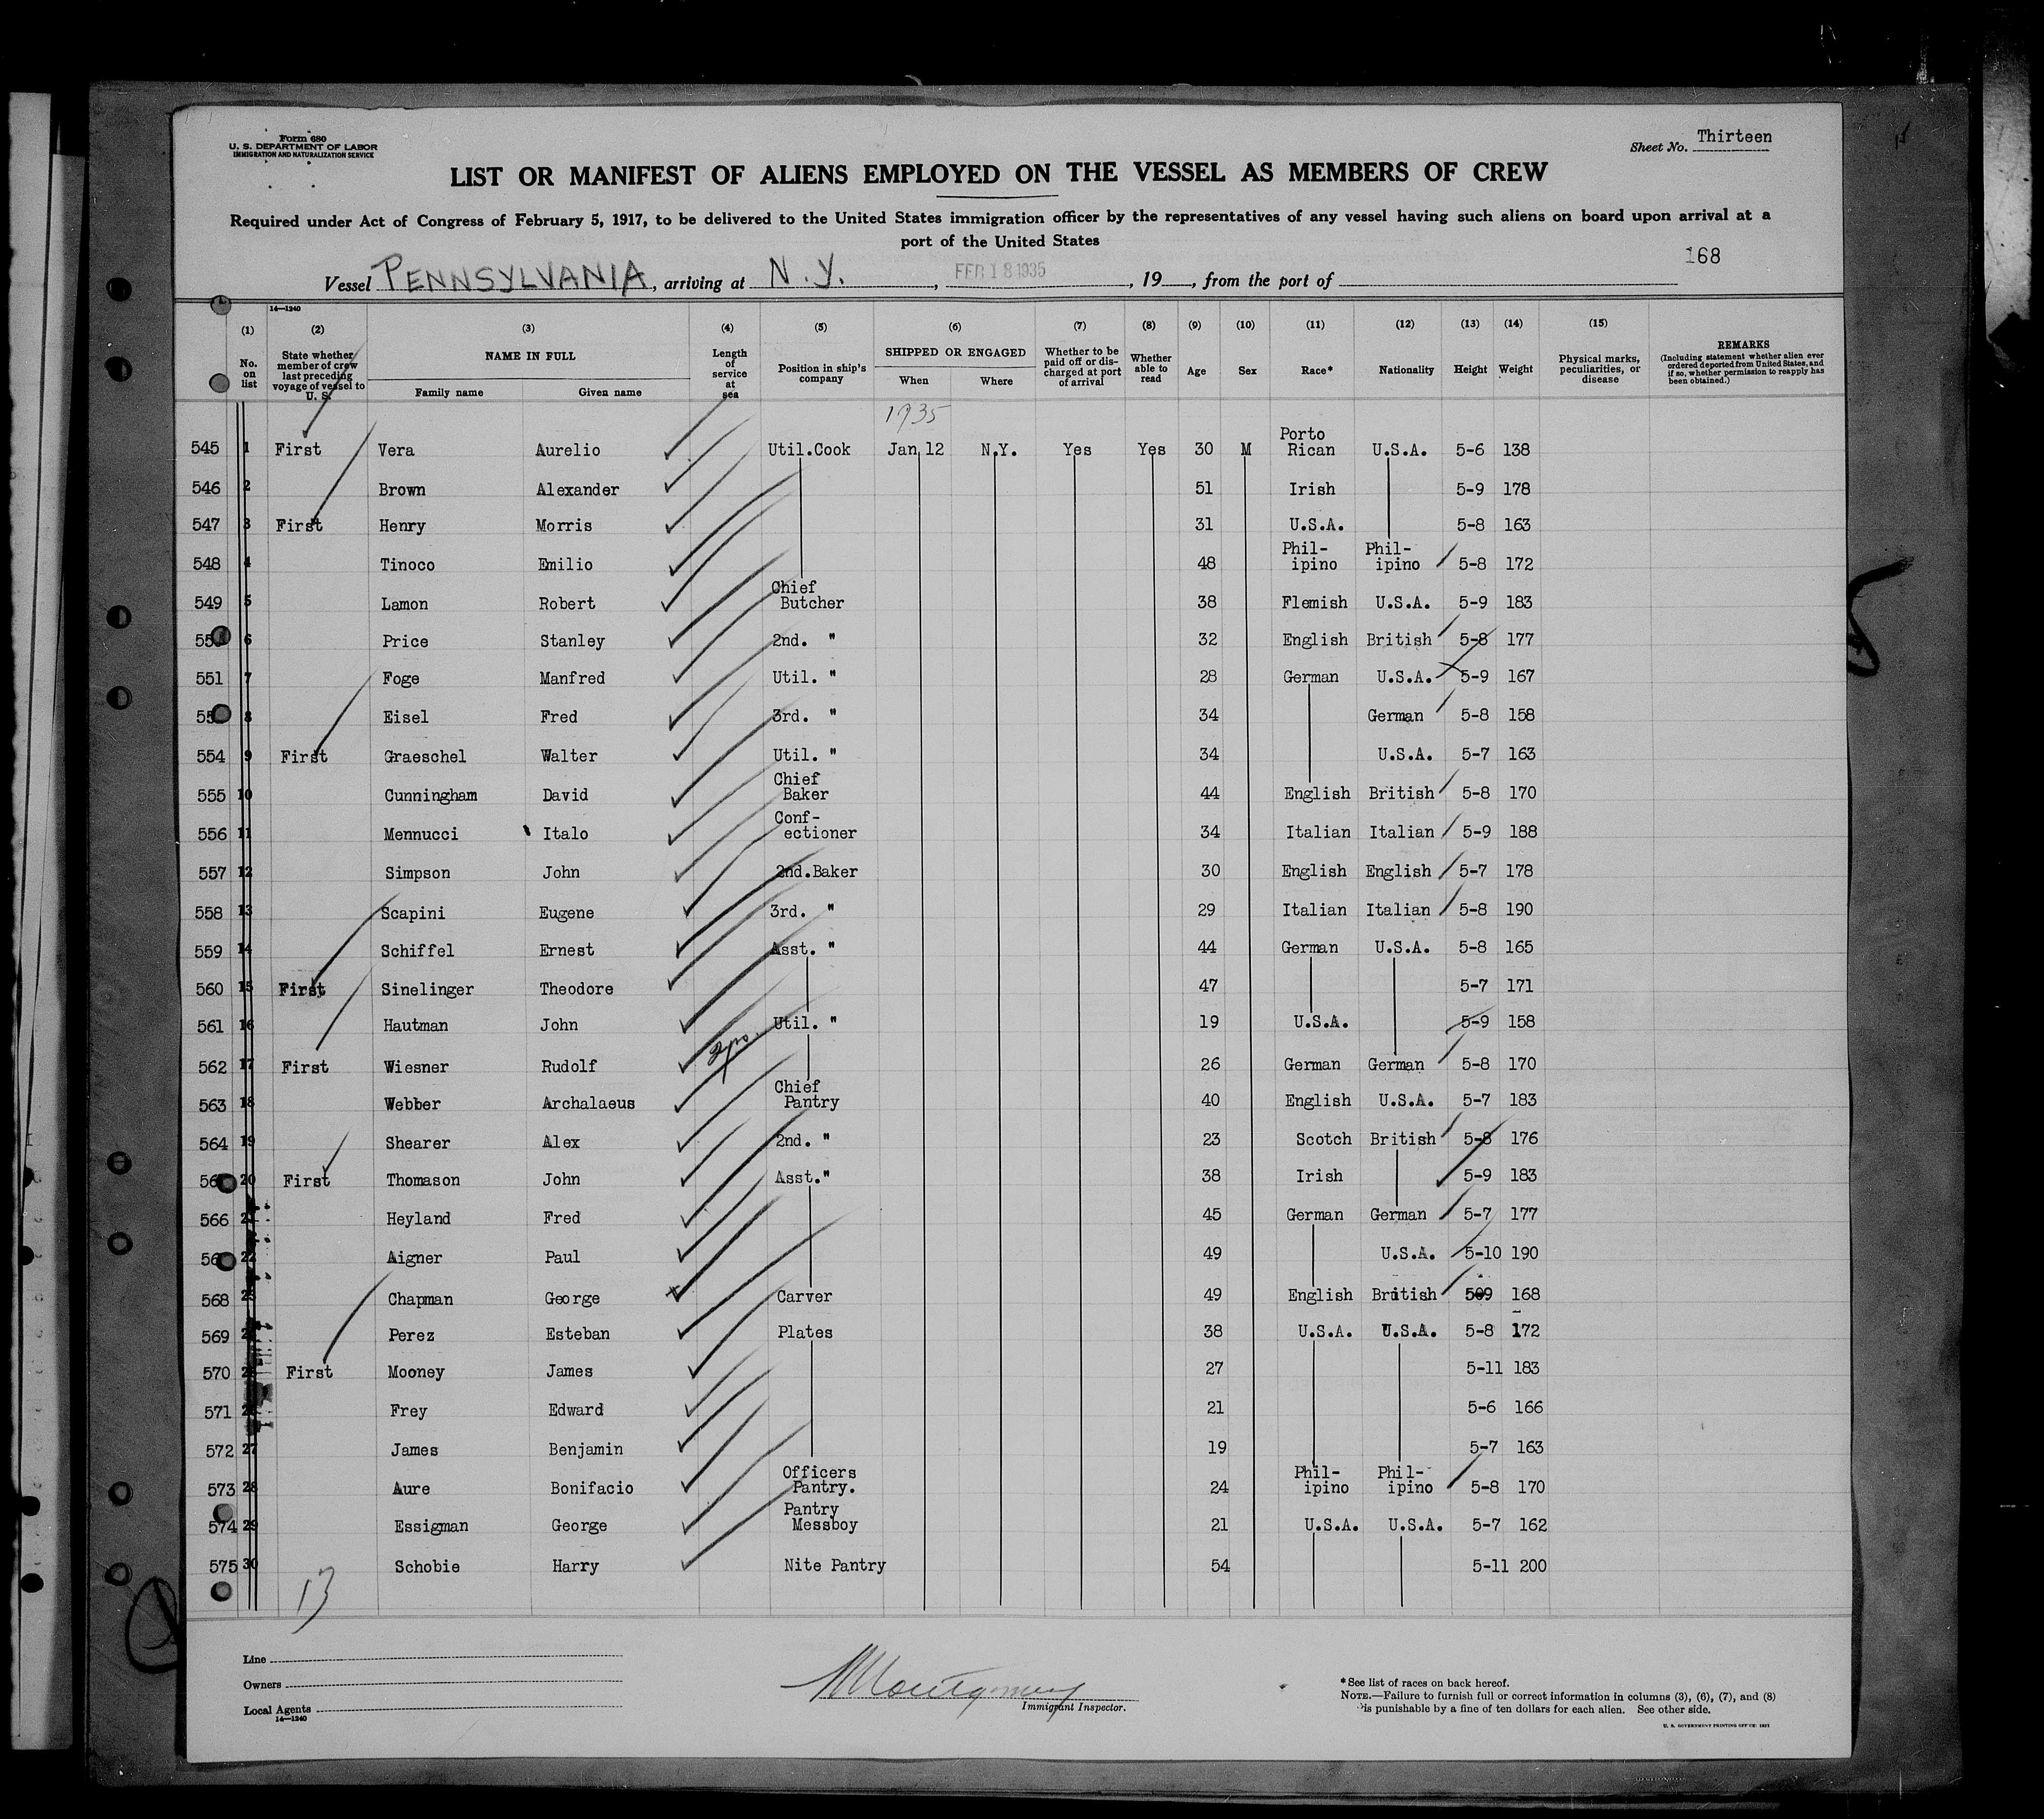 Form 680
U. S. DEPARTMENT OF LABOR
IMMIGRATION AND NATURALIZATION SERVICE
Sheet No. Thirteen
LIST OR MANIFEST OF ALIENS EMPLOYED ON THE VESSEL AS MEMBERS OF CREW
Required under Act of Congress of February 5, 1917, to be delivered to the United States immigration officer by the representatives of any vessel having such aliens on board upon arrival at a
port of the United States
168
Vessel PENNSYLVANIA, arriving at N.Y., FEB 18 1935, 19 , from the port of
14—1240
(1) (2) (3) (4) (5) (6) (7) (8) (9) (10) (11) (12) (13) (14) (15)
No. on list
State whether member of crew last preceding voyage of vessel to U. S.
NAME IN FULL
Family name Given name
Length of service at sea
Position in ship's company
SHIPPED OR ENGAGED
When Where
Whether to be paid off or discharged at port of arrival
Whether able to read
Age
Sex
Race*
Nationality
Height
Weight
Physical marks, peculiarities, or disease
REMARKS
(Including statement whether alien ever ordered deported from United States, and if so, whether permission to reapply has been obtained.)
1935
545 1 First Vera Aurelio Util.Cook Jan 12 N.Y. Yes Yes 30 M Porto Rican U.S.A. 5-6 138
546 2 Brown Alexander 51 Irish 5-9 178
547 3 First Henry Morris 31 U.S.A. 5-8 163
548 4 Tinoco Emilio 48 Phil-ipino Phil-ipino 5-8 172
549 5 Lamon Robert Chief Butcher 38 Flemish U.S.A. 5-9 183
6 Price Stanley 2nd. " 32 English British 5-8 177
551 7 Foge Manfred Util. " 28 German U.S.A. 5-9 167
8 Eisel Fred 3rd. " 34 German 5-8 158
554 9 First Graeschel Walter Util. " 34 U.S.A. 5-7 163
555 10 Cunningham David Chief Baker 44 English British 5-8 170
556 11 Mennucci Italo Conf-ectioner 34 Italian Italian 5-9 188
557 12 Simpson John 2nd.Baker 30 English English 5-7 178
558 13 Scapini Eugene 3rd. " 29 Italian Italian 5-8 190
559 14 Schiffel Ernest Asst. " 44 German U.S.A. 5-8 165
560 15 First Sinelinger Theodore 47 5-7 171
561 16 Hautman John Util. " 19 U.S.A. 5-9 158
562 17 First Wiesner Rudolf 26 German German 5-8 170
563 18 Webber Archalaeus Chief Pantry 40 English U.S.A. 5-7 183
564 19 Shearer Alex 2nd. " 23 Scotch British 5-8 176
20 First Thomason John Asst." 38 Irish 5-9 183
566 Heyland Fred 45 German German 5-7 177
22 Aigner Paul 49 U.S.A. 5-10 190
568 Chapman George Carver 49 English British 509 168
569 Perez Esteban Plates 38 U.S.A. U.S.A. 5-8 172
570 First Mooney James 27 5-11 183
571 Frey Edward 21 5-6 166
572 27 James Benjamin 19 5-7 163
573 28 Aure Bonifacio Officers Pantry. 24 Phil-ipino Phil-ipino 5-8 170
574 29 Essigman George Pantry Messboy 21 U.S.A. U.S.A. 5-7 162
575 30 Schobie Harry Nite Pantry 54 5-11 200
13
Line
Owners
Local Agents
14—1240
Montgomery
Immigrant Inspector.
*See list of races on back hereof.
NOTE.—Failure to furnish full or correct information in columns (3), (6), (7), and (8)
is punishable by a fine of ten dollars for each alien. See other side.